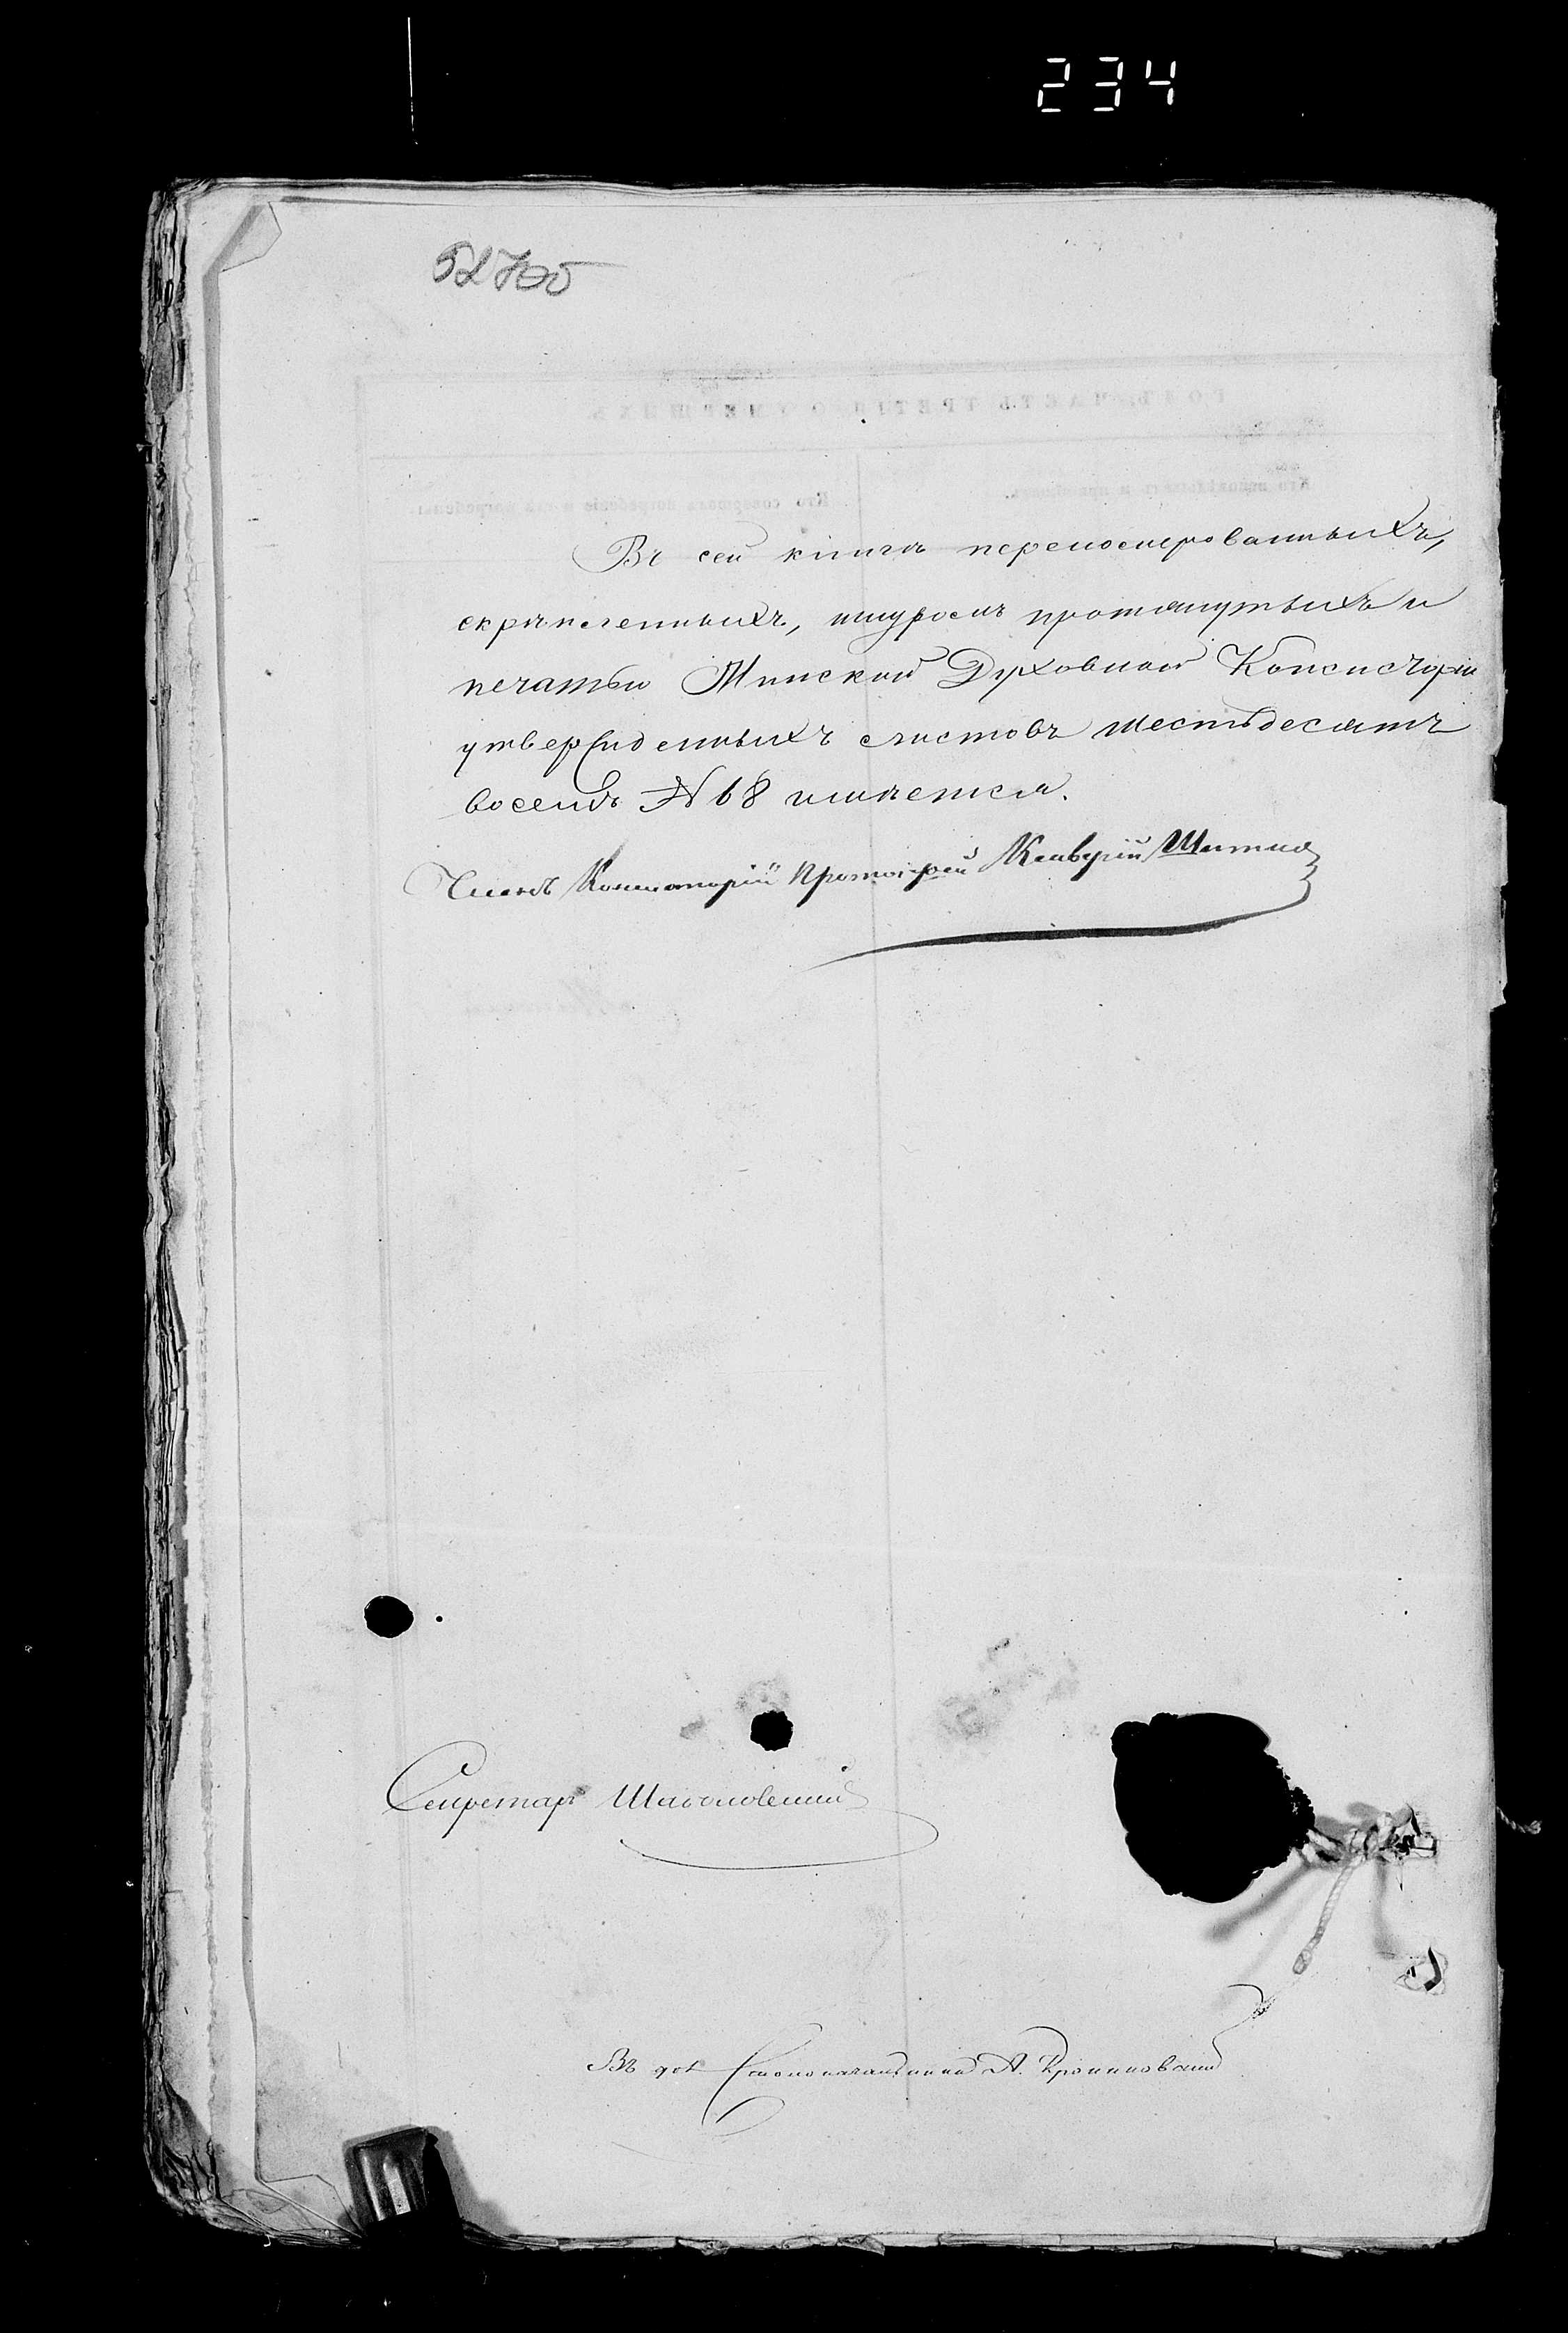 234
Въ сей книгѣ перемосперованныхъ,
скрѣпленныхъ, шнуромъ протянутыхъ и
печатью Минской Духовной Консисторіи
утвержденныхъ листовъ шестьдесятъ
восемь № 68 имѣется.
Членъ Консисторіи Протоіерей
Секретарь
Въ дол Столоначальника А.